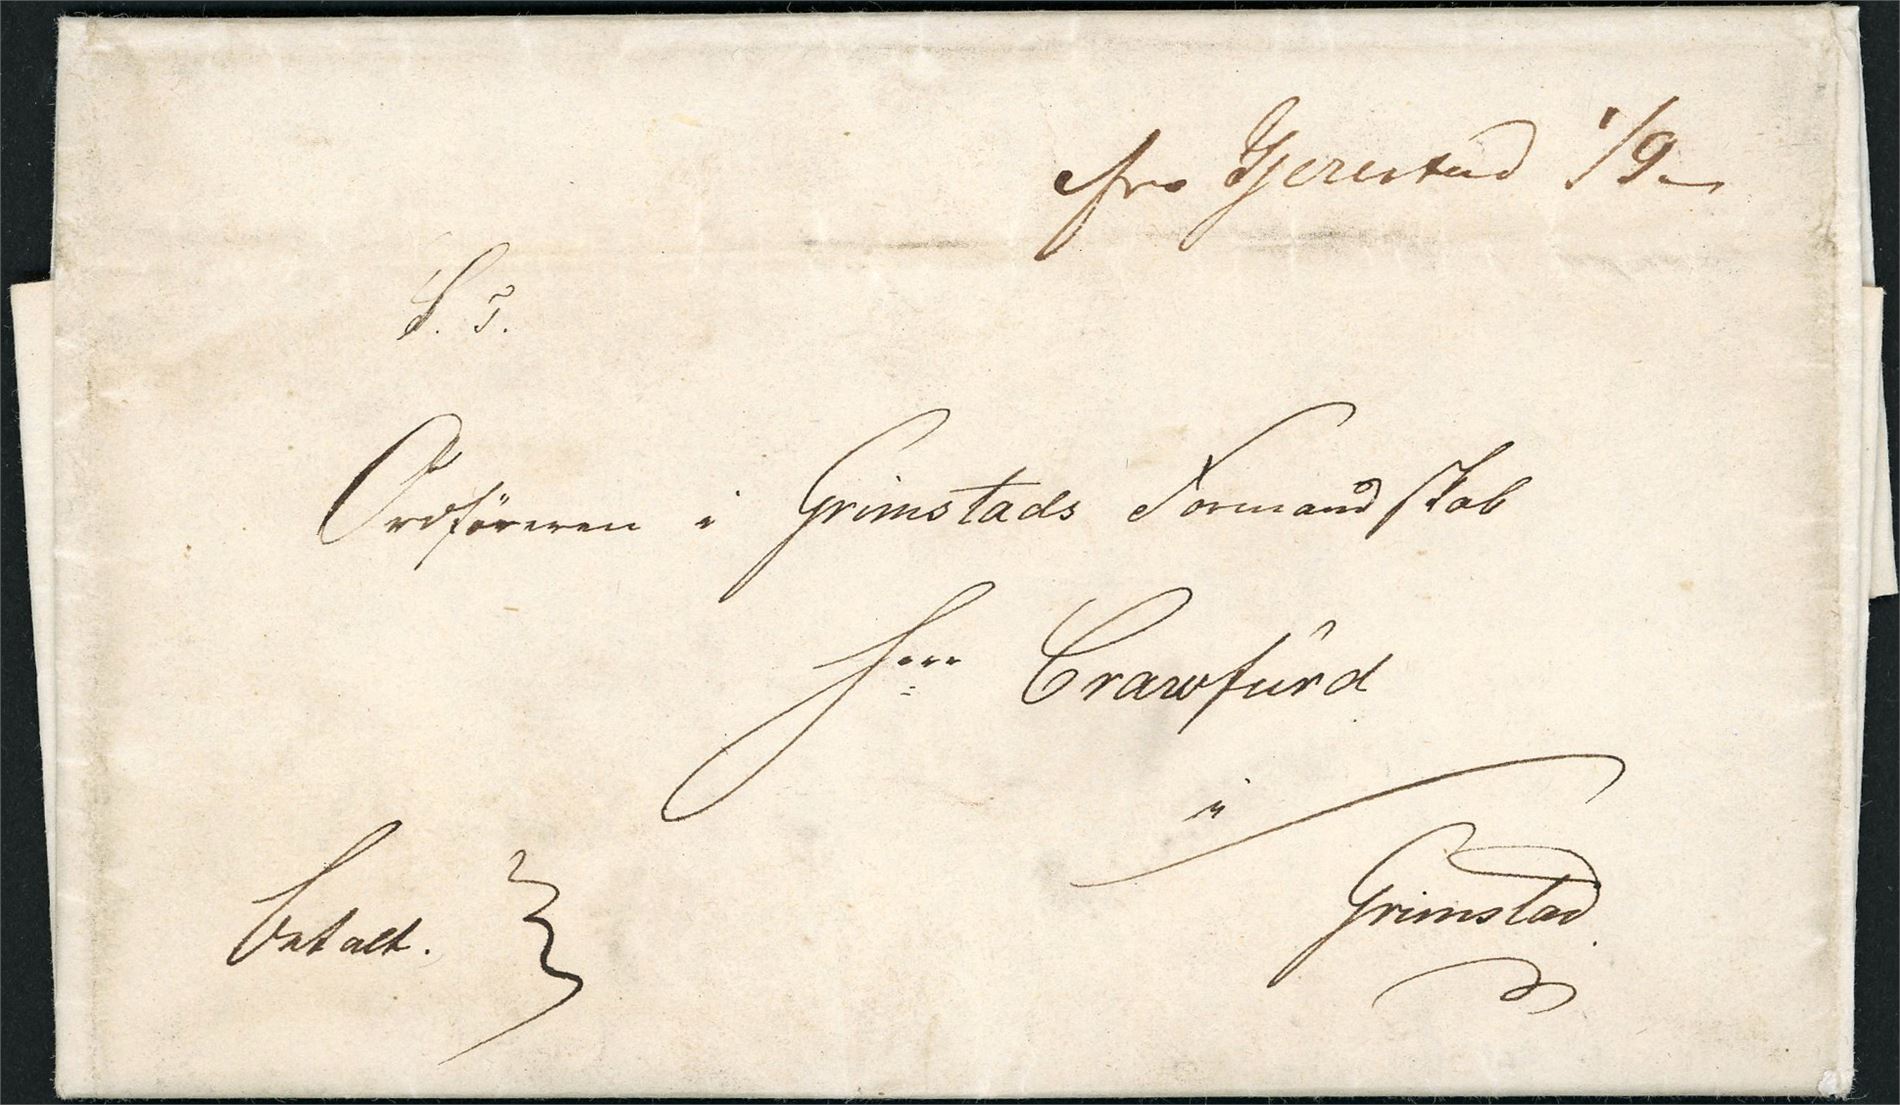 fra Gjerestad 1/9
S. T.
Ordföreren i Grimstads Formandskab
Herr Crawfurd
i
Grimstad.
betalt.